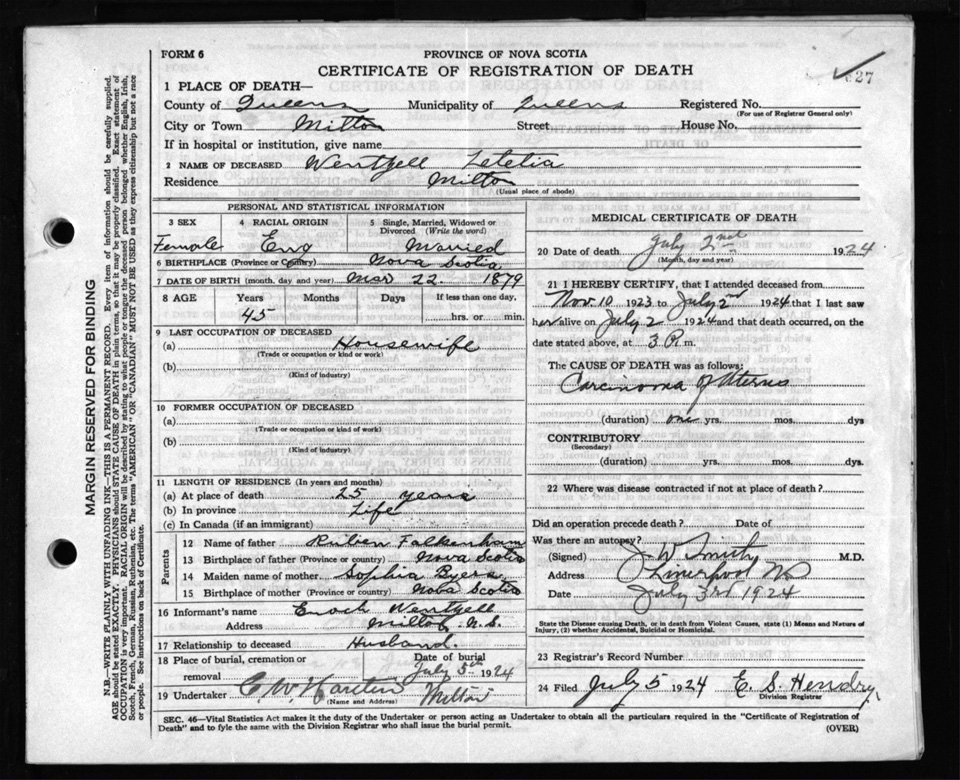 FORM 6
PROVINCE OF NOVA SCOTIA
CERTIFICATE OF REGISTRATION OF DEATH
627
1 PLACE OF DEATH—
County of Queens Municipality of Queens Registered No.
(For use of Registrar General only)
City or Town Milton Street House No.
If in hospital or institution, give name
2 NAME OF DECEASED Wentzell Letetia
Residence Milton
(Usual place of abode)
PERSONAL AND STATISTICAL INFORMATION
3 SEX 4 RACIAL ORIGIN 5 Single, Married, Widowed or Divorced (Write the word)
Female Eng Married
6 BIRTHPLACE (Province or Country) Nova Scotia
7 DATE OF BIRTH (month, day and year) Mar 22 1879
8 AGE Years Months Days If less than one day,
45 hrs. or min.
9 LAST OCCUPATION OF DECEASED
(a) Housewife
(Trade or occupation or kind or work)
(b)
(Kind of industry)
10 FORMER OCCUPATION OF DECEASED
(a)
(Trade or occupation or kind of work)
(b)
(Kind of industry)
11 LENGTH OF RESIDENCE (In years and months)
(a) At place of death 25 years
(b) In province Life
(c) In Canada (if an immigrant)
Parents
12 Name of father Ruben Falkenham
13 Birthplace of father (Province or country) Nova Scotia
14 Maiden name of mother Sophia Byers
15 Birthplace of mother (Province or country) Nova Scotia
16 Informant's name Enoch Wentzell
Address Milton N.S.
17 Relationship to deceased Husband.
18 Place of burial, cremation or removal Date of burial July 5th 1924
19 Undertaker C. W. Milton
(Name and Address)
MEDICAL CERTIFICATE OF DEATH
20 Date of death July 2nd 1924
(Month, day and year)
21 I HEREBY CERTIFY, that I attended deceased from
Nov. 10 1923 to July 2nd 1924 that I last saw
her alive on July 2 1924 and that death occurred, on the
date stated above, at 3 P. m.
The CAUSE OF DEATH was as follows:
Carcinoma of Uterus
(duration) one yrs. mos. dys.
CONTRIBUTORY
(Secondary)
(duration) yrs. mos. dys
22 Where was disease contracted if not at place of death?
Did an operation precede death? Date of
Was there an autopsy?
(Signed) J. W. Smith M.D.
Address Liverpool NS
Date July 3rd 1924
State the Disease causing Death, or in death from Violent Causes, state (1) Means and Nature of
Injury, (2) whether Accidental, Suicidal or Homicidal.
23 Registrar's Record Number
24 Filed July 5 1924 E. S. Hendry.
Division Registrar
SEC. 46—Vital Statistics Act makes it the duty of the Undertaker or person acting as Undertaker to obtain all the particulars required in the "Certificate of Registration of
Death" and to fyle the same with the Division Registrar who shall issue the burial permit.
(OVER)
MARGIN RESERVED FOR BINDING
N.B—WRITE PLAINLY WITH UNFADING INK—THIS IS A PERMANENT RECORD. Every item of information should be carefully supplied.
AGE should be stated EXACTLY. PHYSICIANS should STATE CAUSE OF DEATH in plain terms, so that it may be properly classified. Exact statement of
OCCUPATION is very important. RACIAL ORIGIN will be described by stating to what people or tongue the deceased person belonged whether English, Irish,
Scotch, French, German, Russian, Ruthenian, etc. The terms "AMERICAN" OR "CANADIAN" MUST NOT BE USED as they express citizenship but not a race
or people. See instructions on back of Certificate.